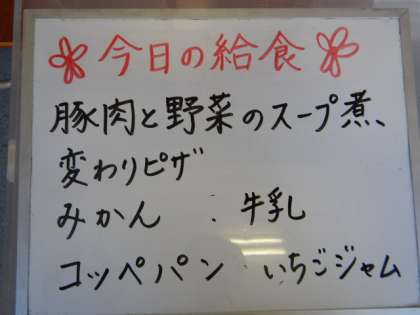 今日の給食
豚肉と野菜のスープ煮、
変わりピザ
みかん ・ 牛乳
コッペパン ・ いちごジャム